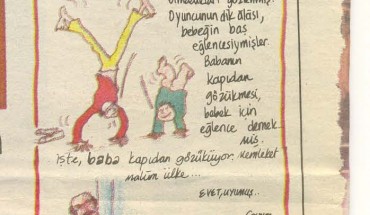 gözlenmiş.
Oyuncunun dik âlâsı,
bebeğin baş
eğlencesiymişler.
Babanın
kapıdan
gözükmesi,
bebek için
eğlence demek
miş.
işte, baba kapıdan gözüküyor. Memleket
malûm ülke...
EVET, UYUMUŞ..